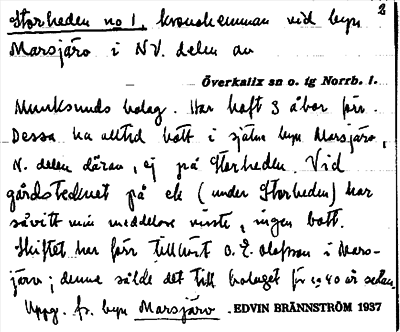 2
Storheden no 1, kronohemman vid byn
Marsjärv i NV. delen av
Överkalix sn o. tg Norrb. l.
Munksunds bolag. Har haft 3 åbor förr.
Dessa ha alltid bott i själva byn Marsjärv,
N. delen därav, ej på Storheden. Vid
gårdstecknet på ek (under Storheden) har
såvitt min meddelare visste, ingen bott.
Skiftet har förr tillhört O. E. Olofsson i Mars-
järv; denne sålde det till bolaget för 40 år sedan.
Uppg. fr. byn Marsjärv. EDVIN BRÄNNSTRÖM 1937